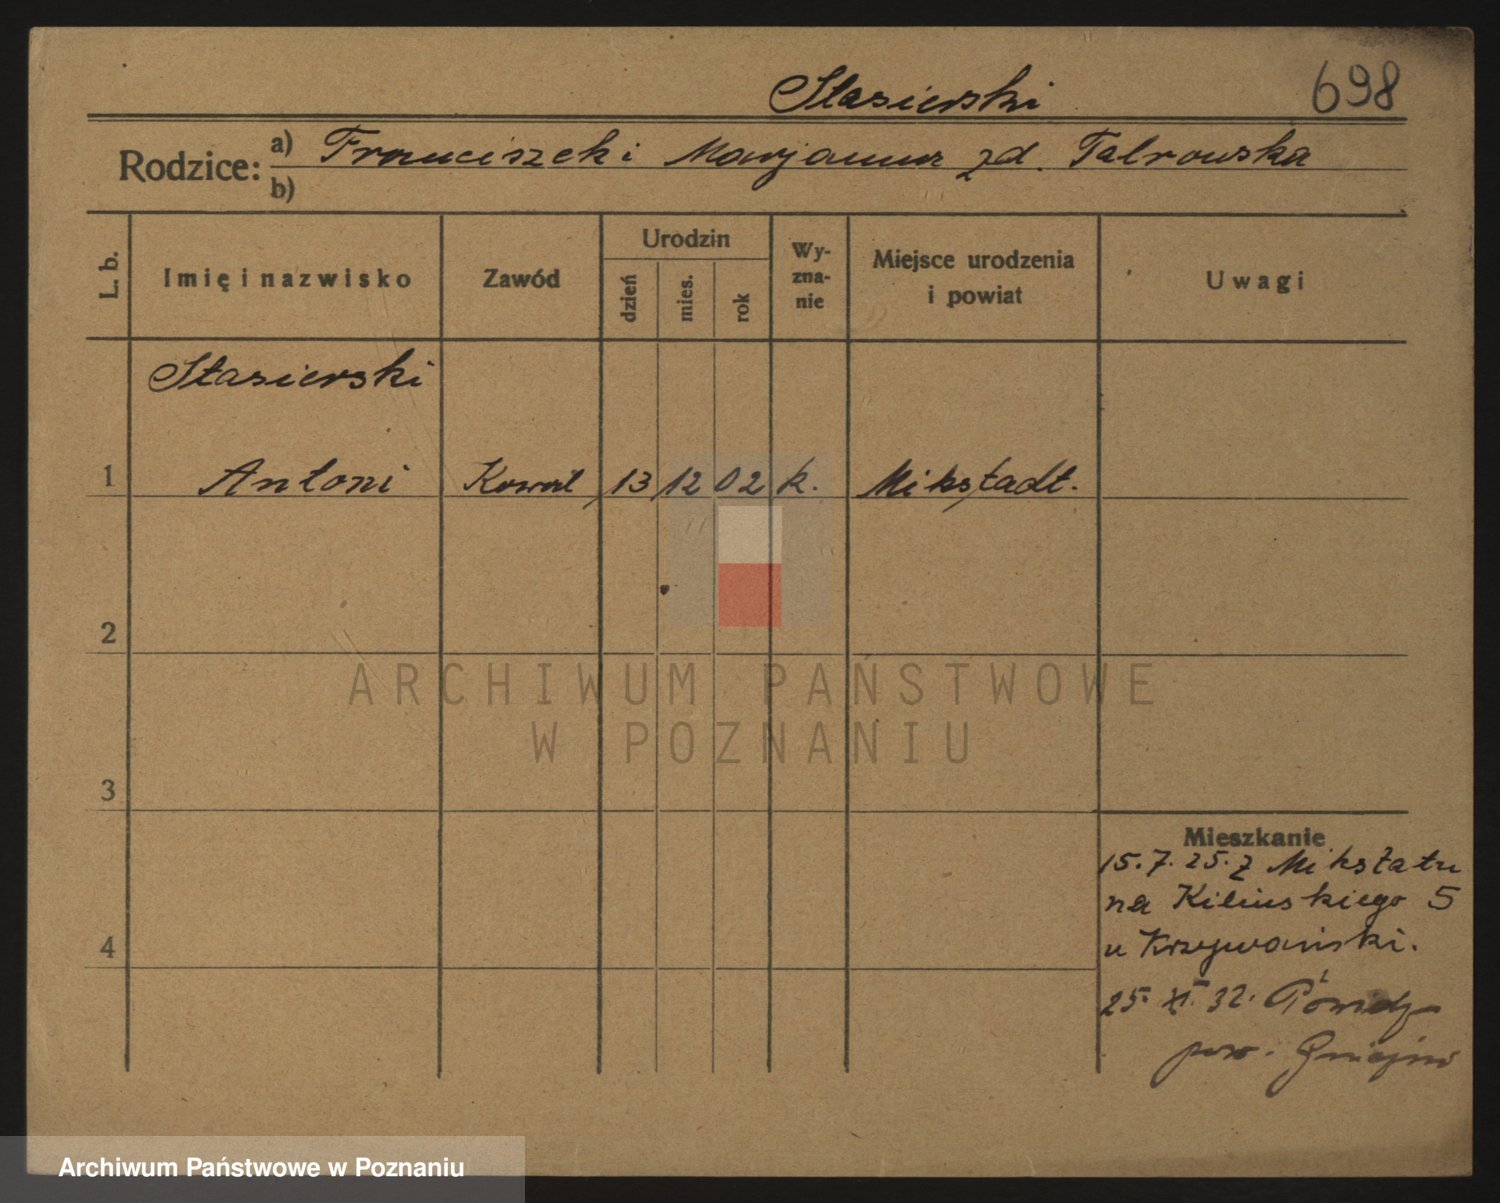 Stasierski
698
Rodzice: a) Franciszek i Marjanna zd. Talrowska
b)
L. b.
Imię i nazwisko
Zawód
Urodzin
dzień
mies.
rok
Wy-
zna-
nie
Miejsce urodzenia
i powiat
Uwagi
Stasierski
1 Antoni Kowal 13 12 02 k. Mikstadt.
2
ARCHIWUM PAŃSTWOWE
W POZNANIU
3
Mieszkanie
15.7.25. z Mikstatu
na Kilińskiego 5
4
u Krzywański.
25. XI. 32.
pow.
Archiwum Państwowe w Poznaniu